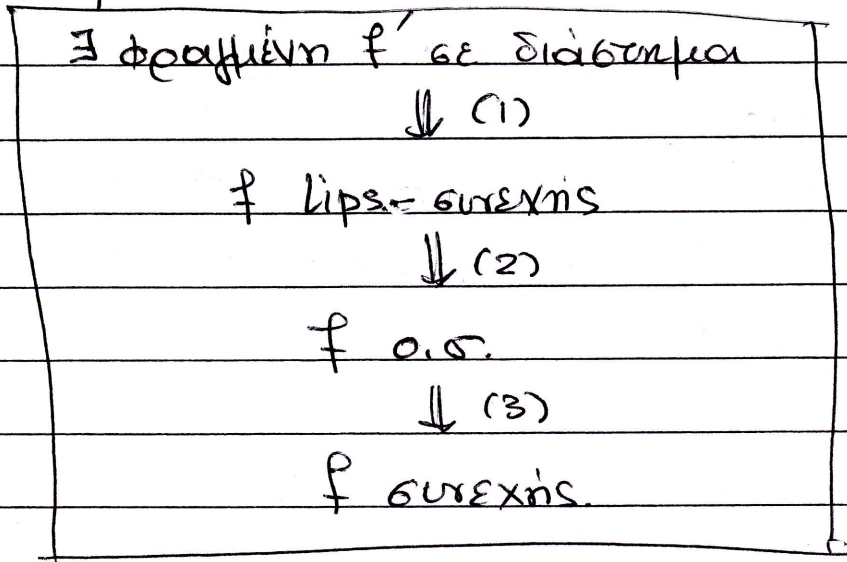 ∃ φραγμένη f' σε διάστημα
⇓ (1)
f lips.- συνεχής
⇓ (2)
f ο.σ.
⇓ (3)
f συνεχής.